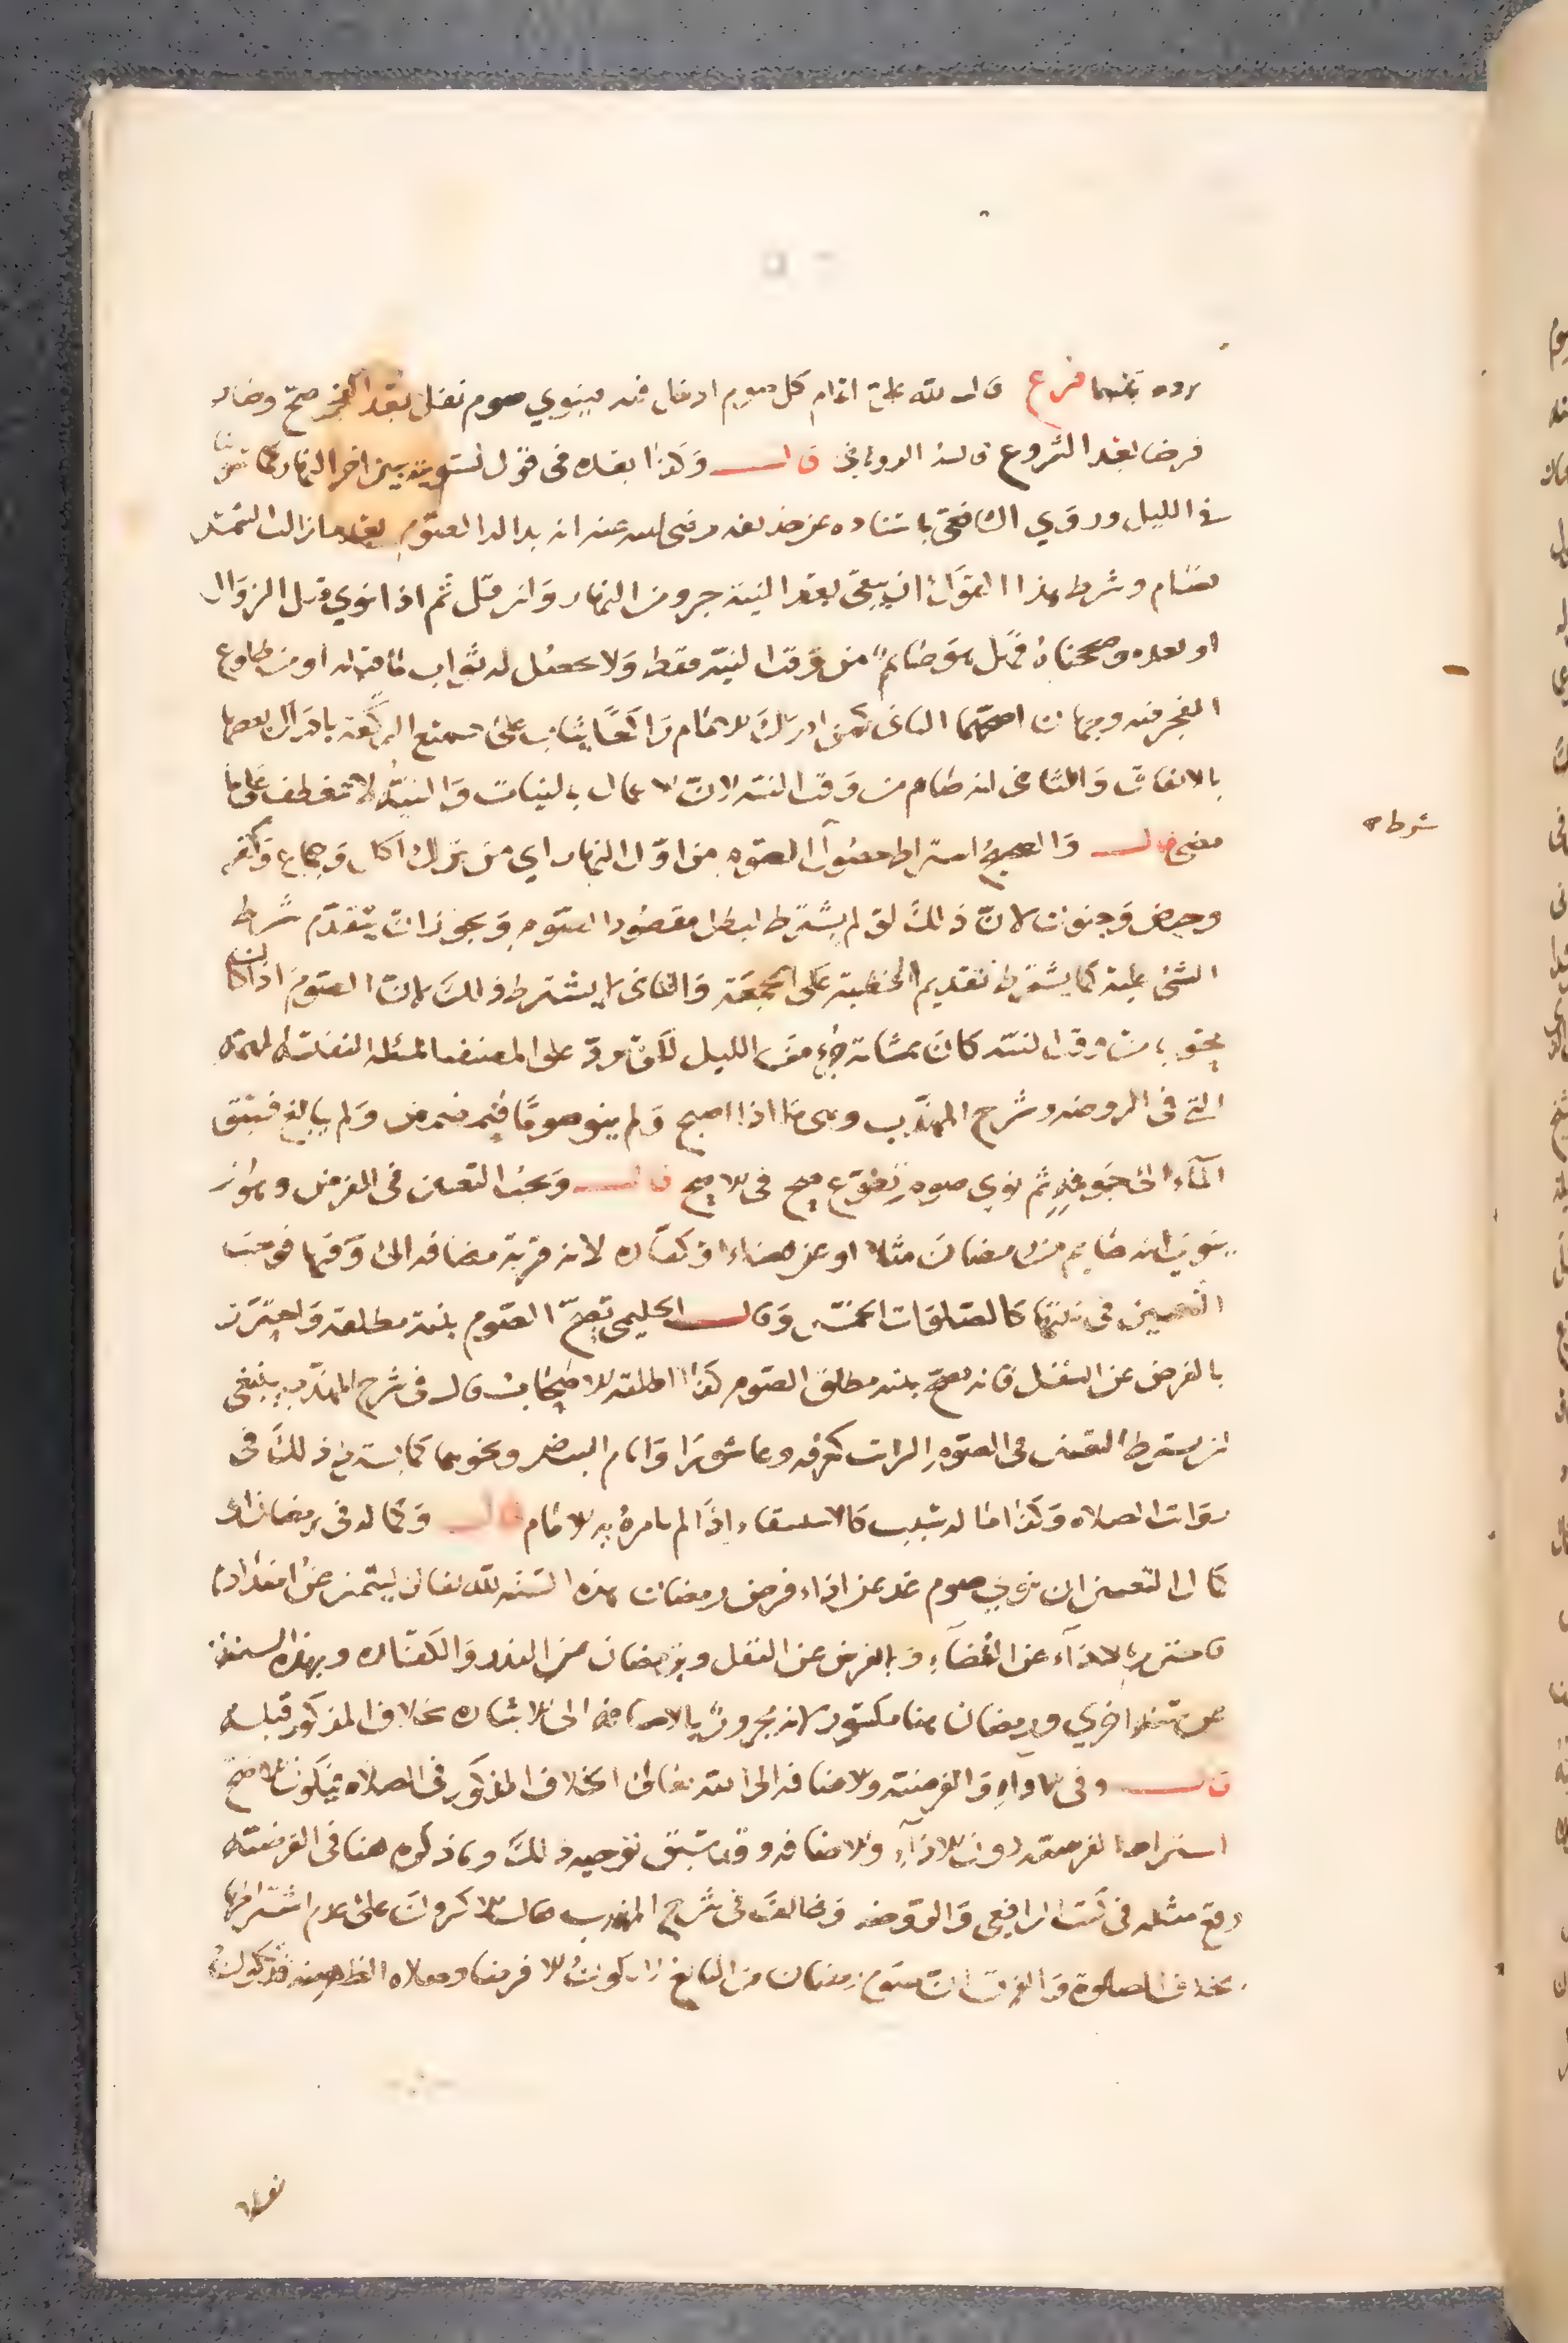 فرع قال لله علي اتمام كل صوم ادخل فيه فينوي صوم نفل بعد الفجر صح وصار
فرضا بعد الشروع قاله الروياني قال وكذا بعده في قول تسوية بين اخر النهار كما
في الليل وروي الشافعي باسناده عن حذيفه رضي الله عنه انه بدا له الصوم بعد ما زالت الشمس
فصام وشرط هذا القول ان يبقى بعد النية جزو من النهار وان قل ثم اذا نوي قبل الزوال
او بعده وصححناه فهل هو صايم من وقت النية فقط ولا يحصل له ثواب ما قبله او من طلوع
الفجر فيه وجهان اصحهما الثاني كمن ادرك الامام راكعا يثاب على جميع الركعة بادراك بعضها
بالاتفاق والثاني انه صايم من وقت النيه لان الاعمال بالنيات والنية لا تنعطف على ما
مضى قال والصحيح اشتراط حصول الصوم من اول النهار اي من ترك اكل وجماع وكفر
وحيض وجنون لان ذلك لو لم يشترط لبطل مقصود الصوم ويجوز ان يتقدم شرط
الشي عليه كما يشترط تقديم الخطبة على الجمعة والثاني لا يشترط ذلك لان الصوم اذا كان
محسوبا من وقت النيه كان بمثابة جزء من الليل لكن يرد على المصنف المسئله
التي في الروضه وشرح المهذب وهي ما اذا اصبح ولم ينو صوما فتمضمض ولم يبالغ فسبق
الماء الى جوفه ثم نوى صوم تطوع صح في الاصح قال ويجب التعيين في الفرض وهو ان
ينوي انه صايم من رمضان مثلا او عن قضاء او كفاره لانه قربة مضافه الى وقتها فوجب
التعيين في نيتها كالصلوات الخمس وقال الحليمي يصح الصوم بنية مطلقة واحترز
بالفرض عن النفل فانه يصح بنيه مطلق الصوم كذا اطلقه الاصحاب قال في شرح المهذب ينبغي
ان يشترط التعيين في الصوم الراتب كعرفه وعاشورا وايام البيض ونحوها كما يشترط ذلك في
رواتب الصلاه وكذا ما له سبب كالاستسقاء اذا لم يامر به الامام قال وكماله في رمضان اي
كمال التعيين ان ينوي صوم غد عن اداء فرض رمضان هذه السنه لله تعالى ليتميز عن اضدادها
فاحترز بالاداء عن القضاء وبالفرض عن النفل وبرمضان عن النذر والكفاره وبهذه السنة
عن سنة اخرى ورمضان هنا مكسور لانه مجرور بالاضافه الى الاشاره بخلاف المذكور قبله
قال وفي الاداء والفرضيه والاضافه الى الله تعالى الخلاف المذكور في الصلاه فيكون الاصح
اشتراط الفرضيه دون الاداء والاضافه وقد سبق توجيه ذلك وما ذكره هنا في الفرضيه
وقع مثله في كتب الرافعي والروضه وخالف في شرح المهذب فقال الاكثرون على عدم اشتراطها
بخلاف الصلوة والفرق ان صوم رمضان من البالغ لا يكون الا فرضا وصلاه الظهر منه قد تكون
شرط
نفلا